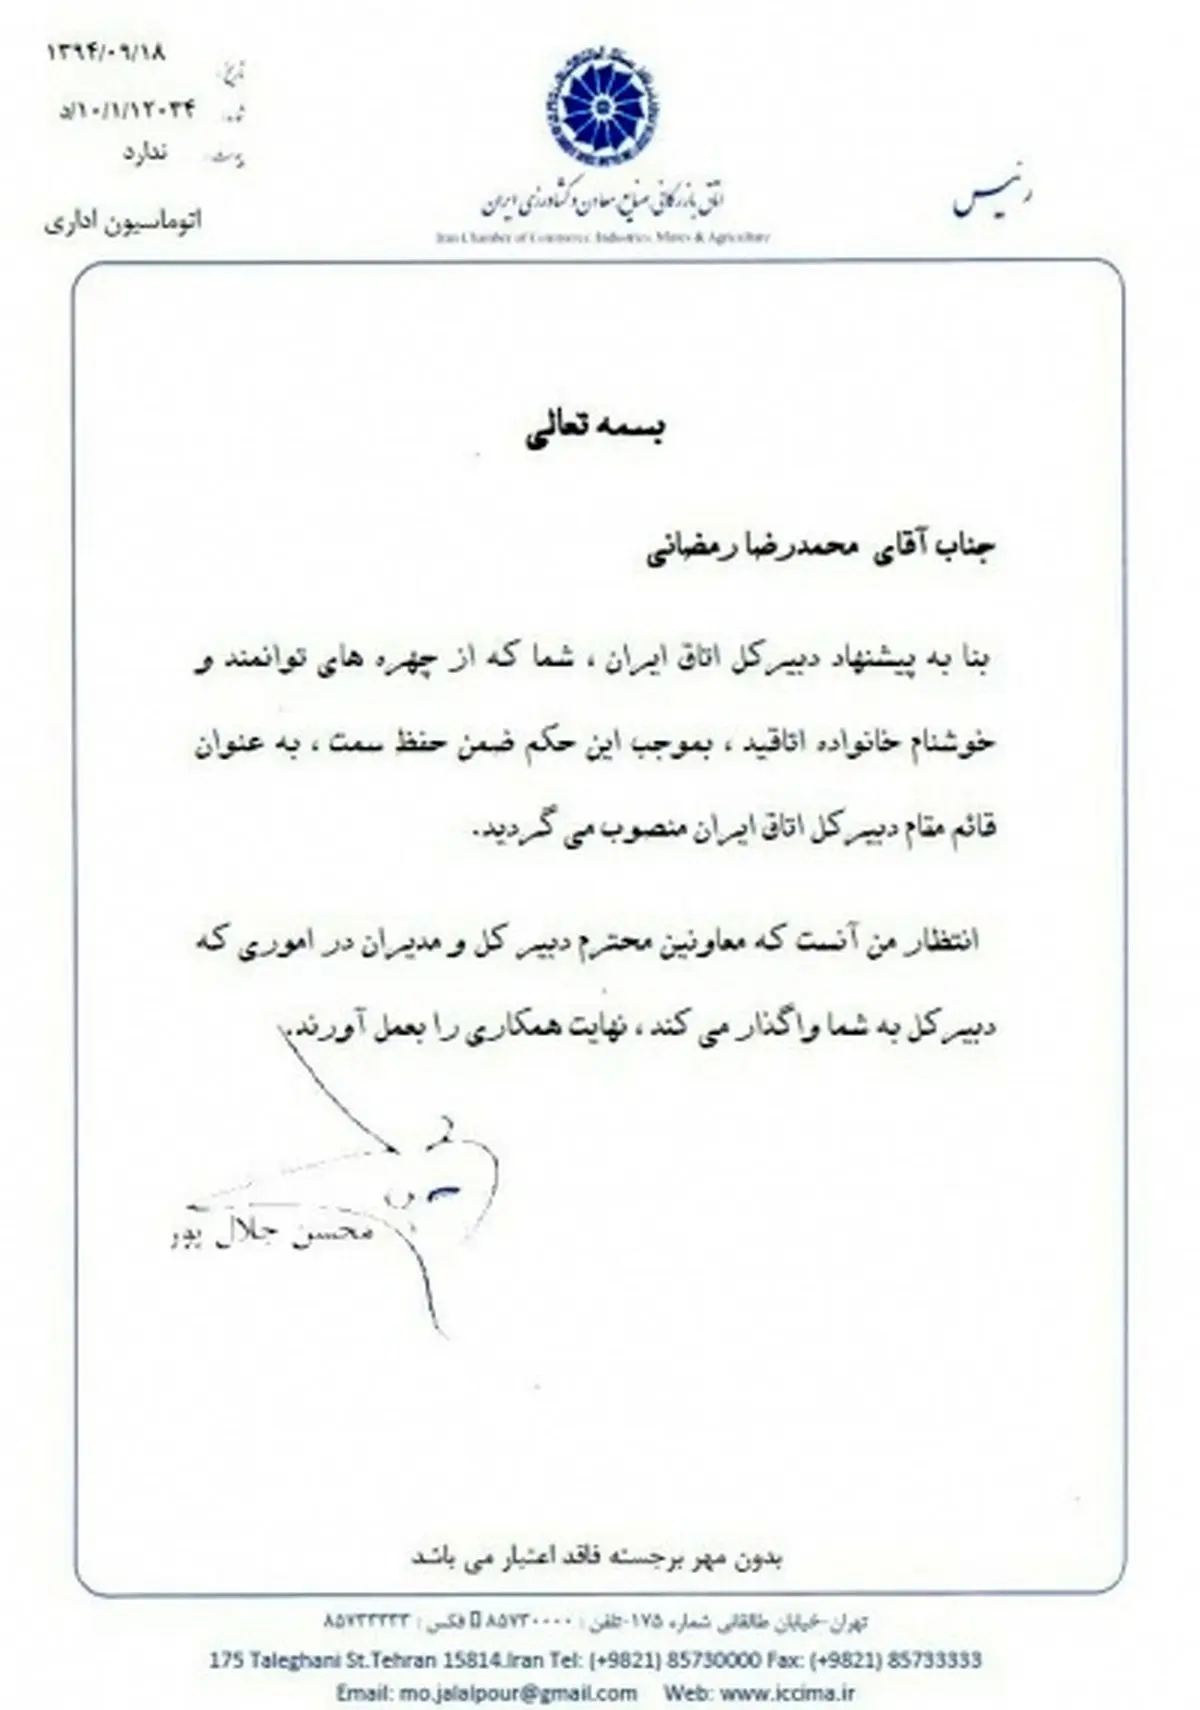 ۱۳۹۴/۰۹/۱۸
تاریخ:
د/۱۰/۱/۱۲۰۳۴
شماره:
ندارد
پیوست:
اتوماسیون اداری
رئیس
اتاق بازرگانی صنایع معادن و کشاورزی ایران
Iran Chamber of Commerce, Industries, Mines & Agriculture
بسمه تعالی
جناب آقای محمدرضا رمضانی
بنا به پیشنهاد دبیرکل اتاق ایران ، شما که از چهره های توانمند و
خوشنام خانواده اتاقید ، بموجب این حکم ضمن حفظ سمت ، به عنوان
قائم مقام دبیرکل اتاق ایران منصوب می گردید.
انتظار من آنست که معاونین محترم دبیر کل و مدیران در اموری که
دبیرکل به شما واگذار می کند ، نهایت همکاری را بعمل آورند.
محسن جلال پور
بدون مهر برجسته فاقد اعتبار می باشد
تهران-خیابان طالقانی شماره ۱۷۵-تلفن : ۸۵۷۳۰۰۰۰ فکس : ۸۵۷۳۳۳۳۳
175 Taleghani St.Tehran 15814.Iran Tel: (+9821) 85730000 Fax: (+9821) 85733333
Email: mo.jalalpour@gmail.com Web: www.iccima.ir